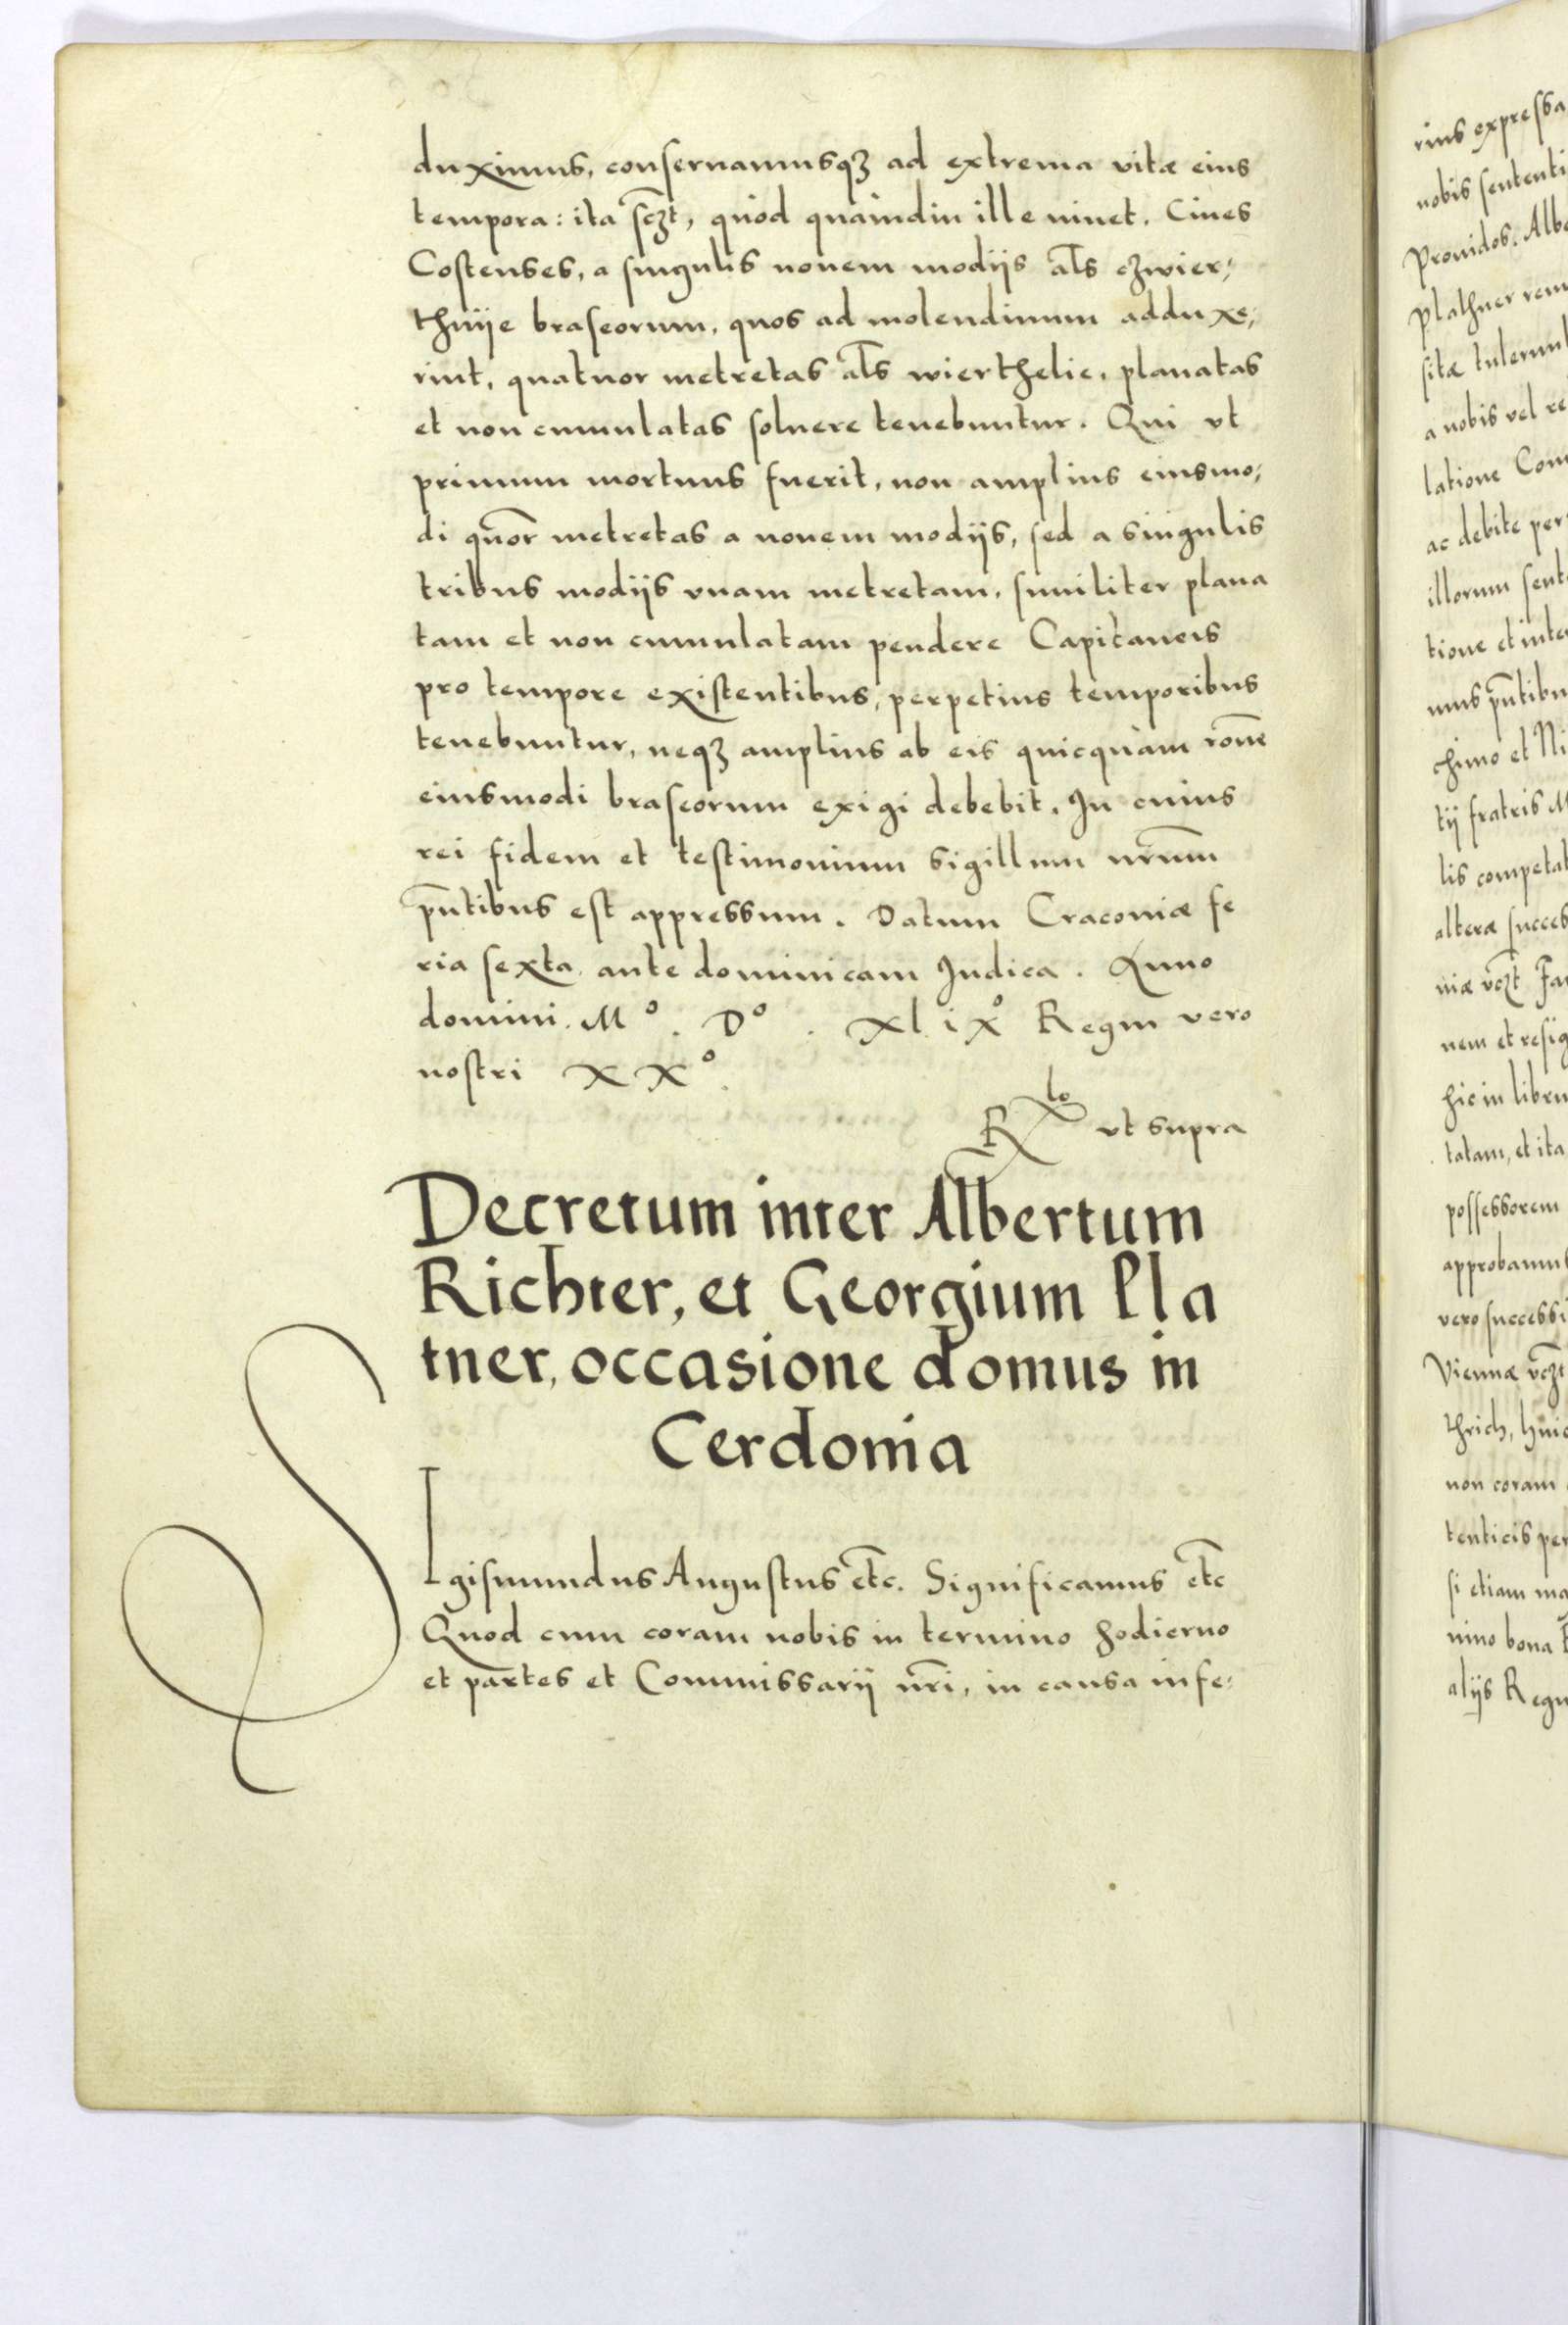 duximus, conseruamusqꝫ ad extrema vitæ eius
tempora: ita scꝫt, quod quamdiu ille uiuet. Ciues
Costenses, a singulis nouem modijs als czwier:
thnije braseorum, quos ad molendinum adduxe:
rint, quatuor metretas als wierthelie, planatas
et non cumulatas soluere tenebuntur. Qui vt
primum mortuus fuerit, non amplius eiusmo:
di quor metretas a nouem modijs, sed a singulis
tribus modijs vnam metretam, similiter plana
tam et non cumulatam pendere Capitaneis
pro tempore existentibus, perpetuis temporibus
tenebuntur, neqꝫ amplius ab eis quicquam rone
eiusmodi braseorum exigi debebit. In cuius
rei fidem et testimonium sigillum nrum
pntibus est appressum. Datum Cracouiæ fe
ria sexta ante dominicam Judica. Anno
domini. M°. D°. xlix° Regni vero
nostri XX°.
Rlo vt supra
Decretum inter Albertum
Richter, et Georgium Pla
tner, occasione domus in
Cerdonia
SIgismundus Augustus etc. Significamus etc
Quod cum coram nobis in termino hodierno
et partes et Commissarij nri, in causa infe:
rius expressa
nobis sententi
Prouidos. Albe
Plathner rem
sitæ tulerunt
a nobis vel re
latione Com
ac debite per
illorum sent
tione et inte
mus pntibu
chimo et Ni
tij fratris M
lis competat
alteræ succes
niæ vcꝫt Fa
nem et resig
hic in libru
tatam, et ita
possessorem
approbamus
vero successi
Viennæ vcꝫt
thrich, huic
non coram
tenticis per
si etiam ma
nino bona
alijs Regn